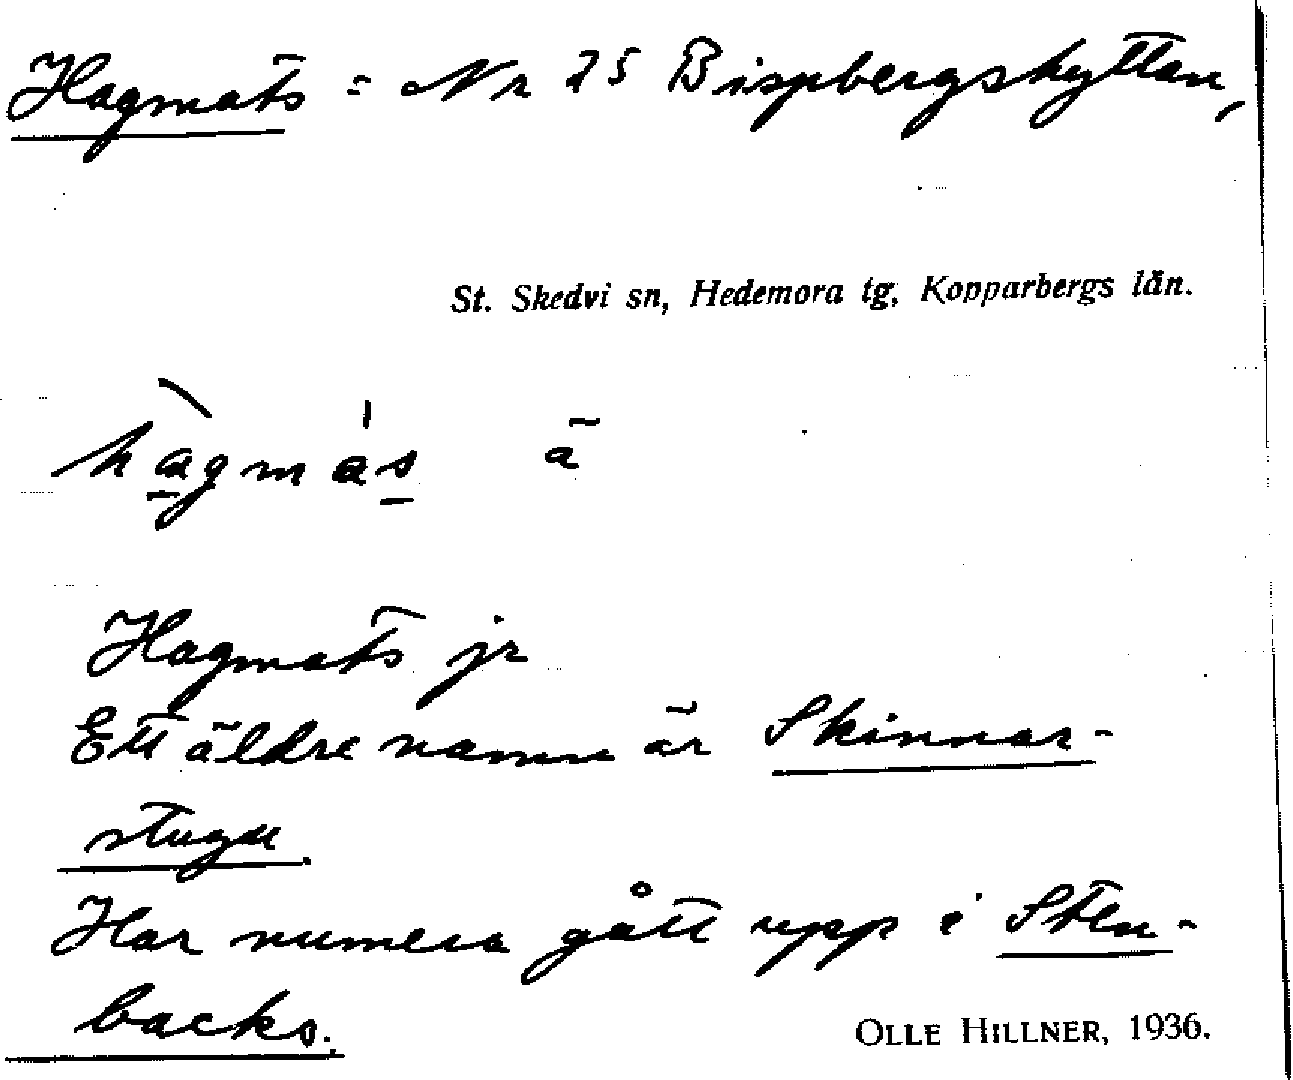 Hagmats = Nr 25 Bispbergshyttan,
St. Skedvi sn, Hedemora tg, Kopparbergs län.
hàgmás ä
Hagmats jr
Ett äldre namn är Skinnar-
stugu.
Har numera gått upp i Sten-
backs.
OLLE HILLNER, 1936.